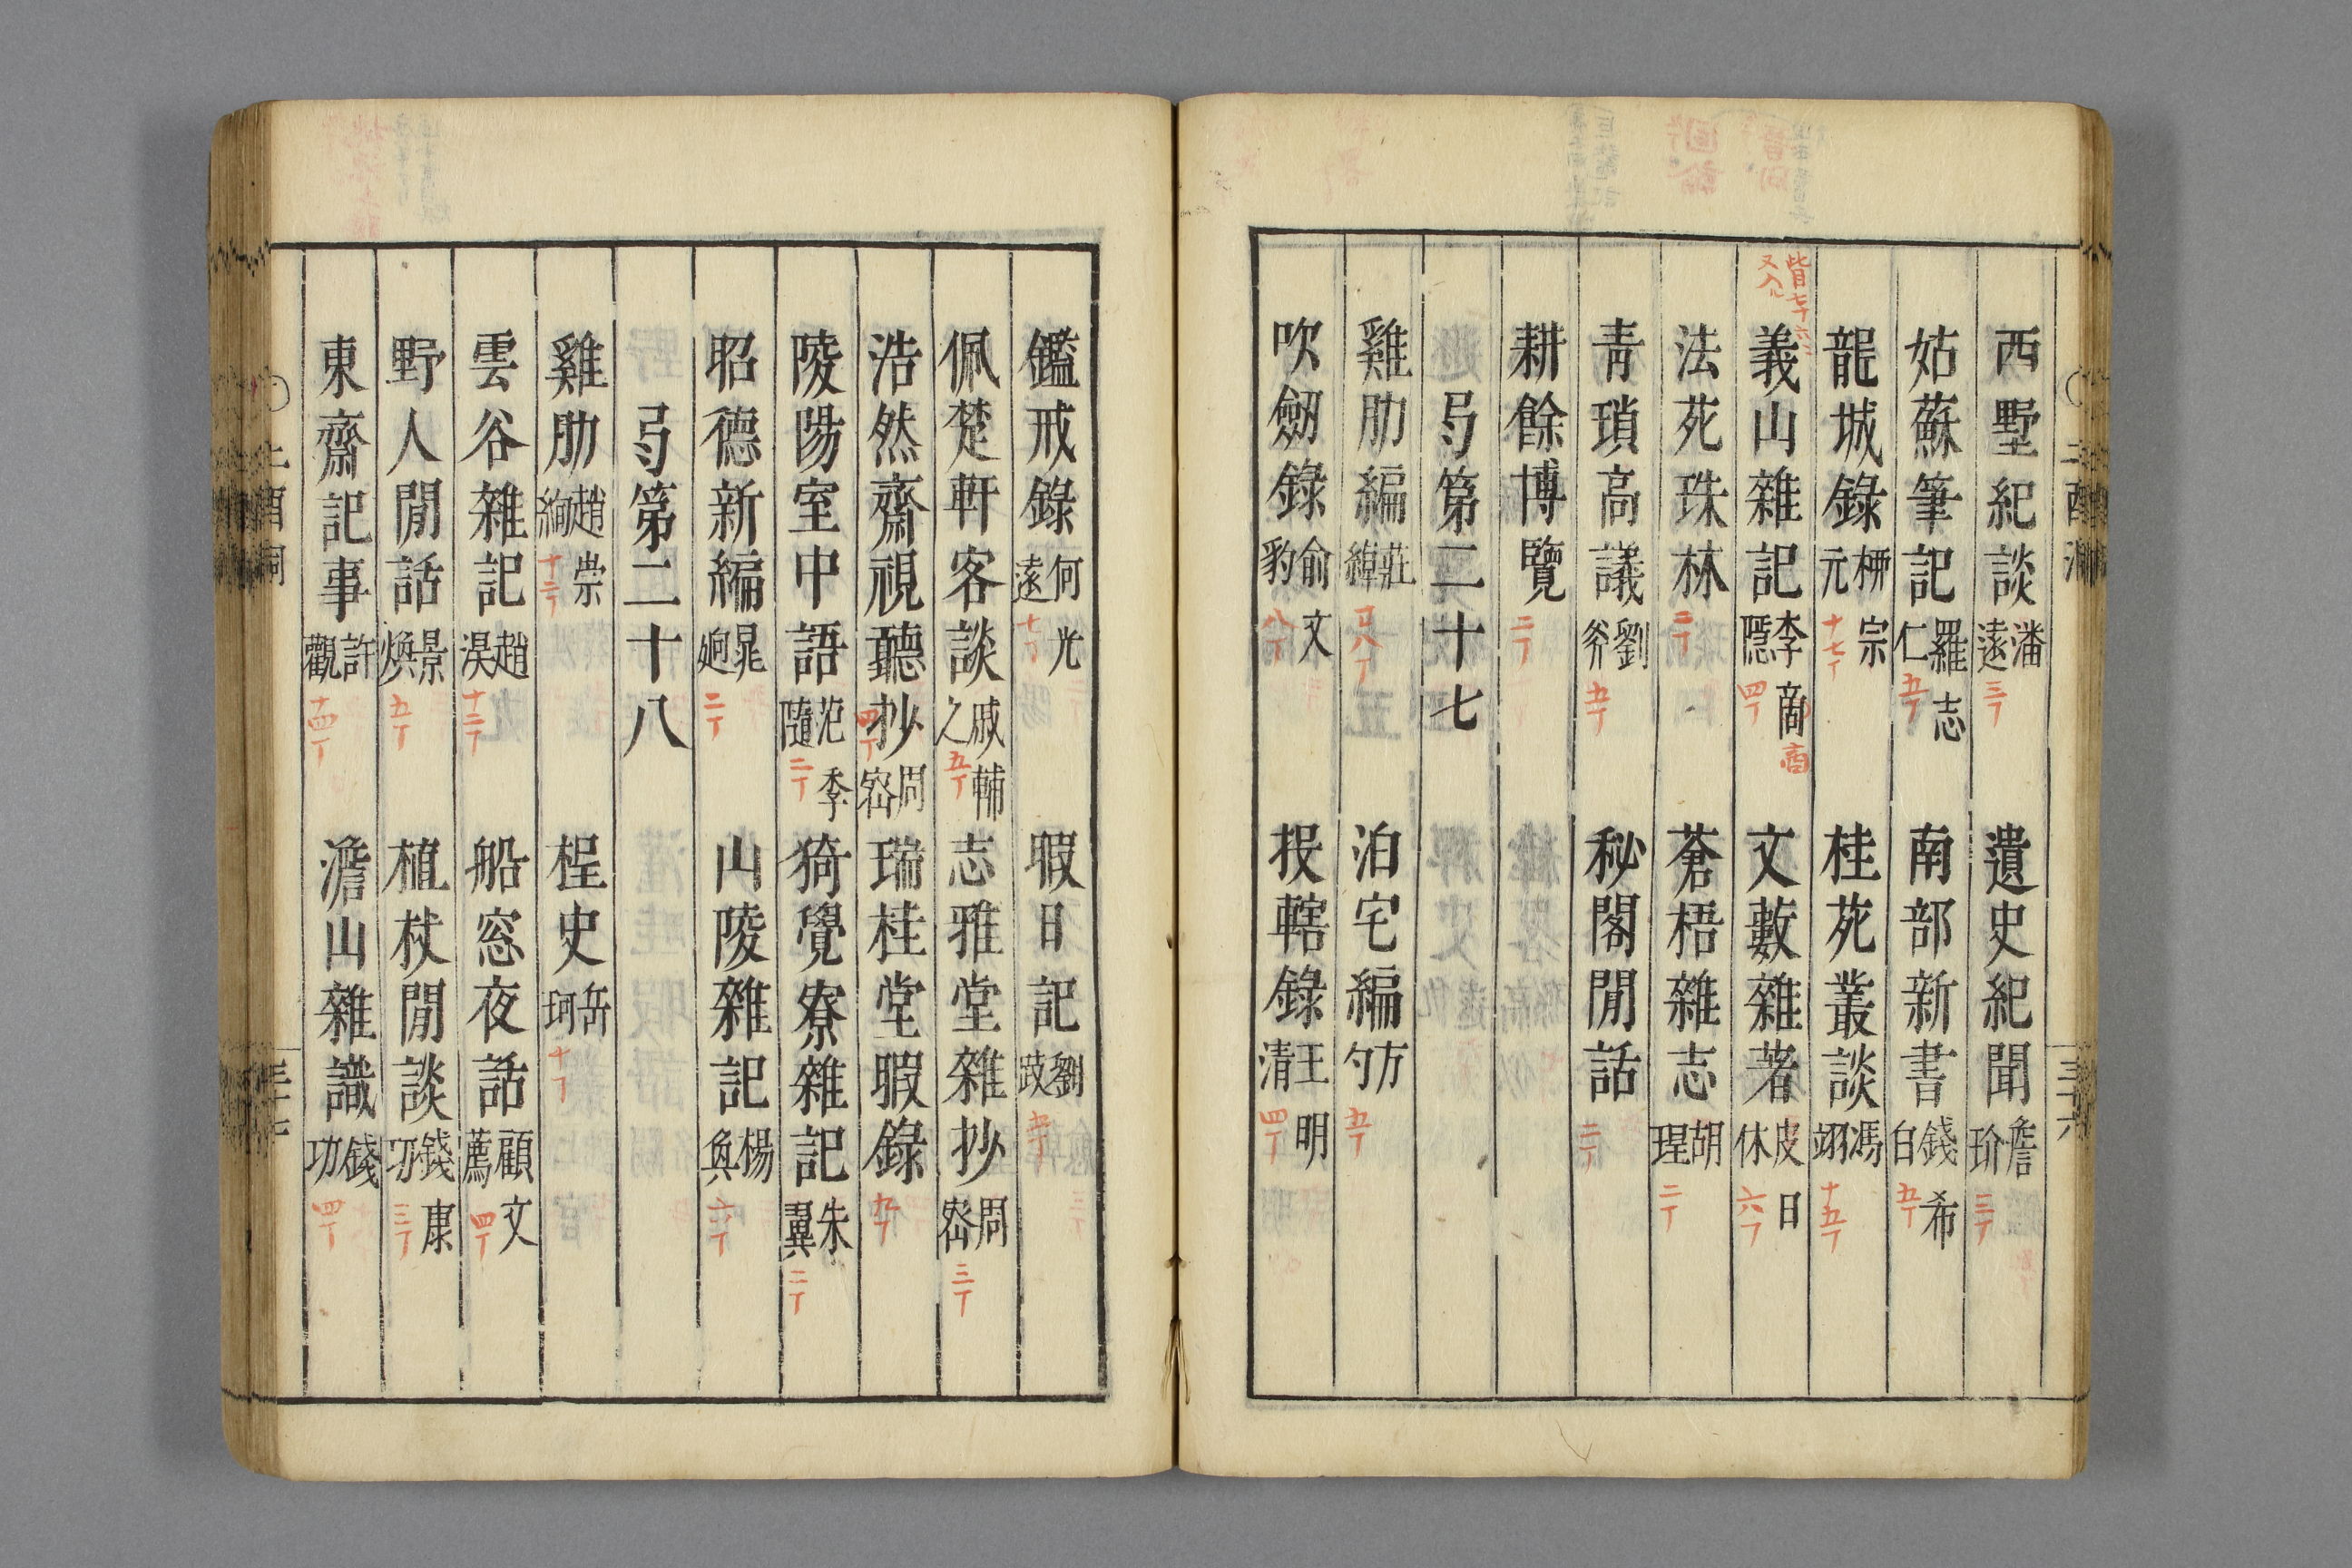 西墅紀談潘遠三丁 遺史紀聞詹玠三丁
姑蘇筆記羅志仁五丁 南部新書錢希白五丁
龍城錄柳宗元十七丁 桂苑叢談馮翊十五丁
皆七十六ニ又入ル
義山雜記李商隱四丁商 文藪雜著皮日休六丁
法苑珠林二丁 蒼梧雜志胡珵二丁
青瑣高議劉斧五丁 秘閣閒話二丁
耕餘博覽二丁
弓第二十七
雞肋編莊綽廿八丁 泊宅編方勺五丁
吹劒錄俞文豹八丁 投轄錄王明清四丁
鑑戒錄何光遠七丁 暇日記劉跂五丁
佩楚軒客談戚輔之五丁 志雅堂雜抄周密三丁
浩然齋視聽抄周密四丁 瑞桂堂暇錄九丁
陵陽室中語范季隨二丁 猗覺寮雜記朱翼二丁
昭德新編晁迥二丁 山陵雜記楊奐六丁
弓第二十八
雞肋趙崇絢十二丁 桯史岳珂十丁
雲谷雜記趙淏十二丁 船窓夜話顧文薦四丁
野人閒話景煥五丁 植杖閒談錢康功三丁
東齋記事許觀十四丁 澹山雜識錢功四丁